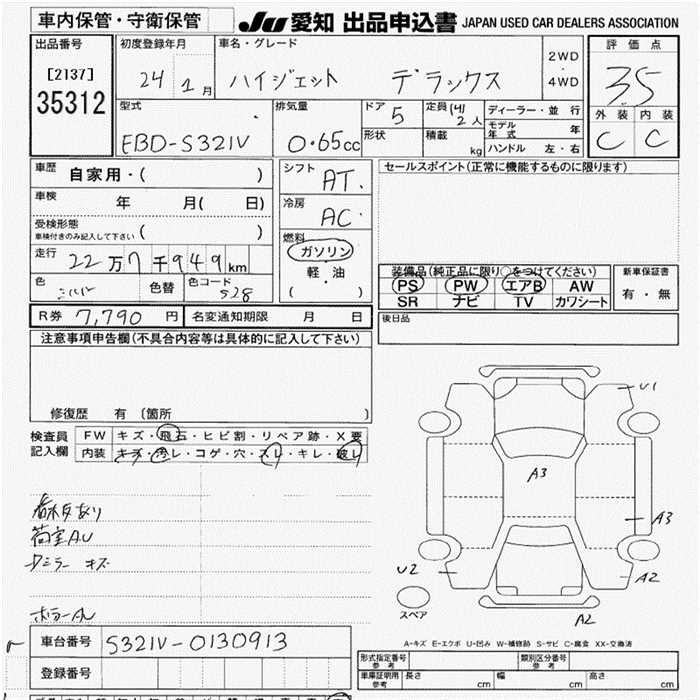 車内保管・守衛保管
JU 愛知 出品申込書 JAPAN USED CAR DEALERS ASSOCIATION
出品番号
[2137]
35312
初度登録年月
24 年 2月
車名・グレード
ハイジェット デラックス
2WD
・
4WD
評価点
3.5
外装 内装
C C
型式
EBD-S321V
排気量
0.65cc
ドア
5
形状
定員 (4)
2人
積載
kg
ディーラー・並行
モデル
年式 年
ハンドル 左・右
車歴 自家用・( )
車検 年 月( 日)
受検形態
車検付きのみ記入して下さい ( )
走行 22万7千949km
色 シルバー 色替 色コード S28
シフト
AT
冷房
AC
燃料
ガソリン
軽・油
( )
セールスポイント(正常に機能するものに限ります)
装備品(純正品に限り○をつけてください)
PS PW エアB AW
SR ナビ TV カワシート
新車保証書
有・無
後日品
R券 7,790円 名変通知期限 月 日
注意事項申告欄(不具合内容等は具体的に記入して下さい)
修復歴 有 〔箇所 〕
検査員
記入欄
FW キズ・飛石・ヒビ割・リペア跡・X要
内装 キズ・汚レ・コゲ・穴・スレ・キレ・破レ
荷室AU
Dミラー キズ
U1
A3
A3
U2
A2
A2
スペア
A-キズ E-エクボ U-凹み W-補修跡 S-サビ C-腐食 XX-交換済
車台番号 S321V-0130913
登録番号
形式指定番号
参考
類別区分番号
参考
車庫証明用
参考
長さ cm 幅 cm 高さ cm